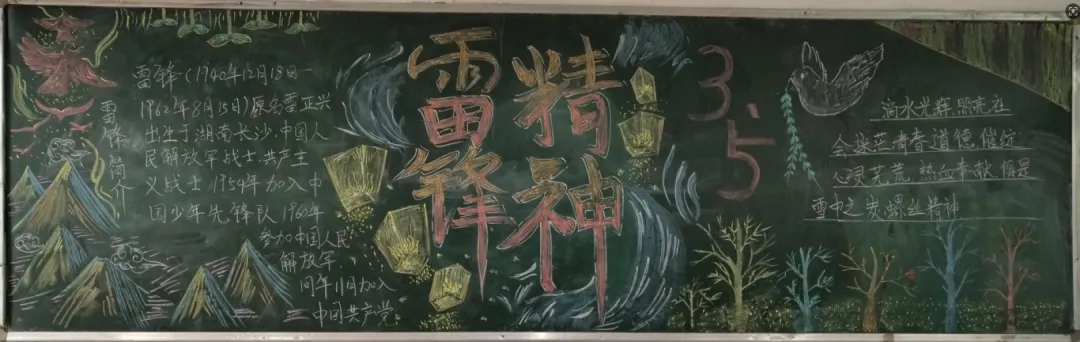 雷锋简介
雷锋（1940年12月18日一
1962年8月15日）原名雷正兴
出生于湖南长沙.中国人
民解放军战士.共产主
义战士 1954年加入中
国少年先锋队 1960年
参加中国人民
解放军
同年11月加入
中国共产党
雷锋
精神
3.5
滴水光辉.照亮在
青春道德催绽
心灵芜荒.热血奉献.倡是
雪中之炭.螺丝精神